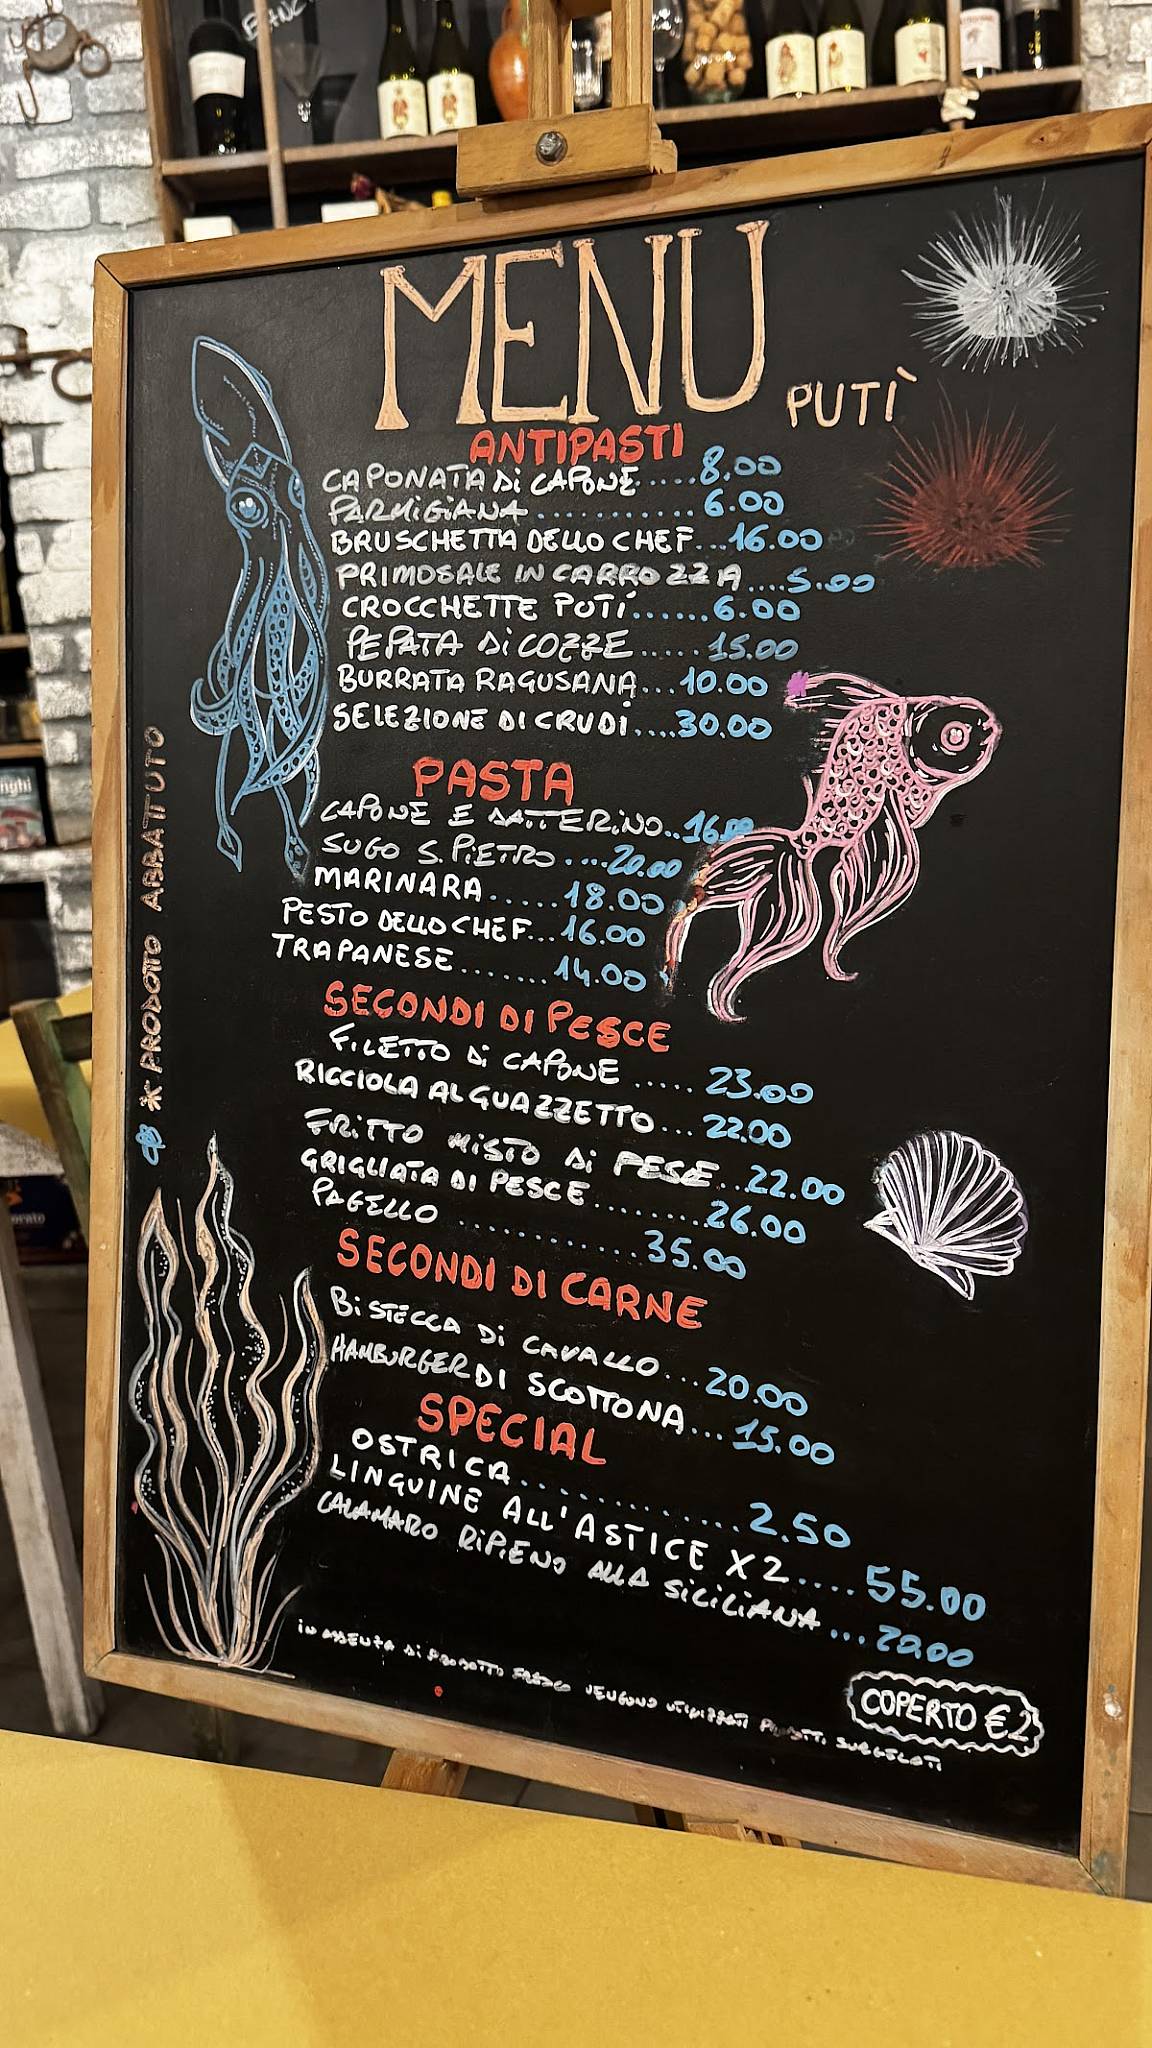 MENU
PUTÌ
ANTIPASTI
CAPONATA Di CAPONE.....8.00
PARMIGIANA............6.00
BRUSCHETTA DELLO CHEF...16.00
PRIMOSALE IN CARROZZA....5.00
CROCCHETTE PUTÍ......6.00
PEPATA Di COZZE.....15.00
BURRATA RAGUSANA...10.00
SELEZIONE DI CRUDi....30.00
PASTA
CAPONE E DATTERINO..16.00
SUGO S. PIETRO....20.00
MARINARA......18.00
PESTO DELLO CHEF...16.00
TRAPANESE.......14.00
SECONDI DI PESCE
FiLETTO Di CAPONE.....23.00
RICCIOLA AL GUAZZETTO...22.00
FRiTTO MiSTO Di PESE...22.00
GRIGLIATA DI PESCE........26.00
PAGELLO............35.00
SECONDI DI CARNE
BiSTECCA Di CAVALLO...20.00
HAMBURGER DI SCOTTONA...15.00
SPECIAL
OSTRICA............2.50
LINGUINE ALL'ASTICE X2....55.00
CALAMARO RiPiENO ALLA SiCiLiANA...20.00
iN ASSENZA Di PRODOTTO FRESCO VENGONO UTiLiZZATi PRODOTTi SURGELATi
COPERTO €2
* PRODOTTO ABBATTUTO